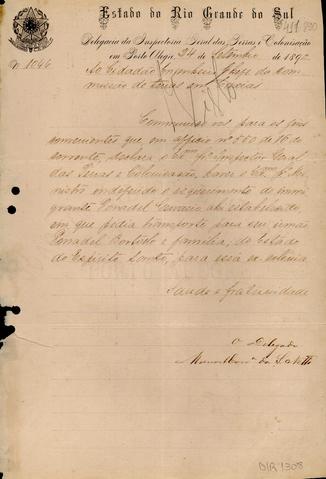 Estado do Rio Grande do Sul
Delegacia da Inspectoria Geral das Terras e Colonisação
em Porto Alegre, 24 de Setembro de 1892
Nº 1046
Ao Cidadão Engenheiro Chefe da Com
missão de terras em Caxias
Visto
Communico vos para os fins
convenientes que, em officio nº 560 de 16 do
corrente, declara o Exmº Sr. Inspector Geral
das Terras e Colonisação, haver o Exmº Sr. Mi
nistro indeferido o requerimento do immi
grante
ahi estabelecido,
em que pedia transporte para seu irmão
e familia, do Estado
do Espirito Santo, para essa ex colonia
Saude e fraternidade
O Delegado
DIR 1308